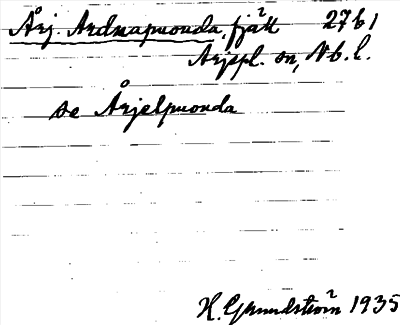 Årj. Ardnapuonda, fjäll 27b1
Arjepl. sn, Nb. l.
se Årjelpuonda
H. Grundström 1935